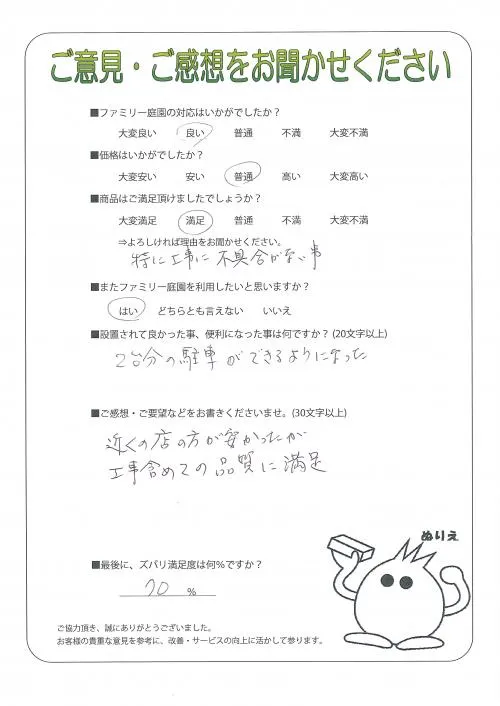 ご意見・ご感想をお聞かせください
■ファミリー庭園の対応はいかがでしたか？
大変良い 良い 普通 不満 大変不満
■価格はいかがでしたか？
大変安い 安い 普通 高い 大変高い
■商品はご満足頂けましたでしょうか？
大変満足 満足 普通 不満 大変不満
⇒よろしければ理由をお聞かせください。
特に工事に不具合がない事
■またファミリー庭園を利用したいと思いますか？
はい どちらとも言えない いいえ
■設置されて良かった事、便利になった事は何ですか？(20文字以上)
2台分の駐車ができるようになった
■ご感想・ご要望などをお書きくださいませ。(30文字以上)
近くの店の方が安かったが
工事含めての品質に満足
ぬりえ
■最後に、ズバリ満足度は何％ですか？
70 %
ご協力頂き、誠にありがとうございました。
お客様の貴重な意見を参考に、改善・サービスの向上に活かして参ります。